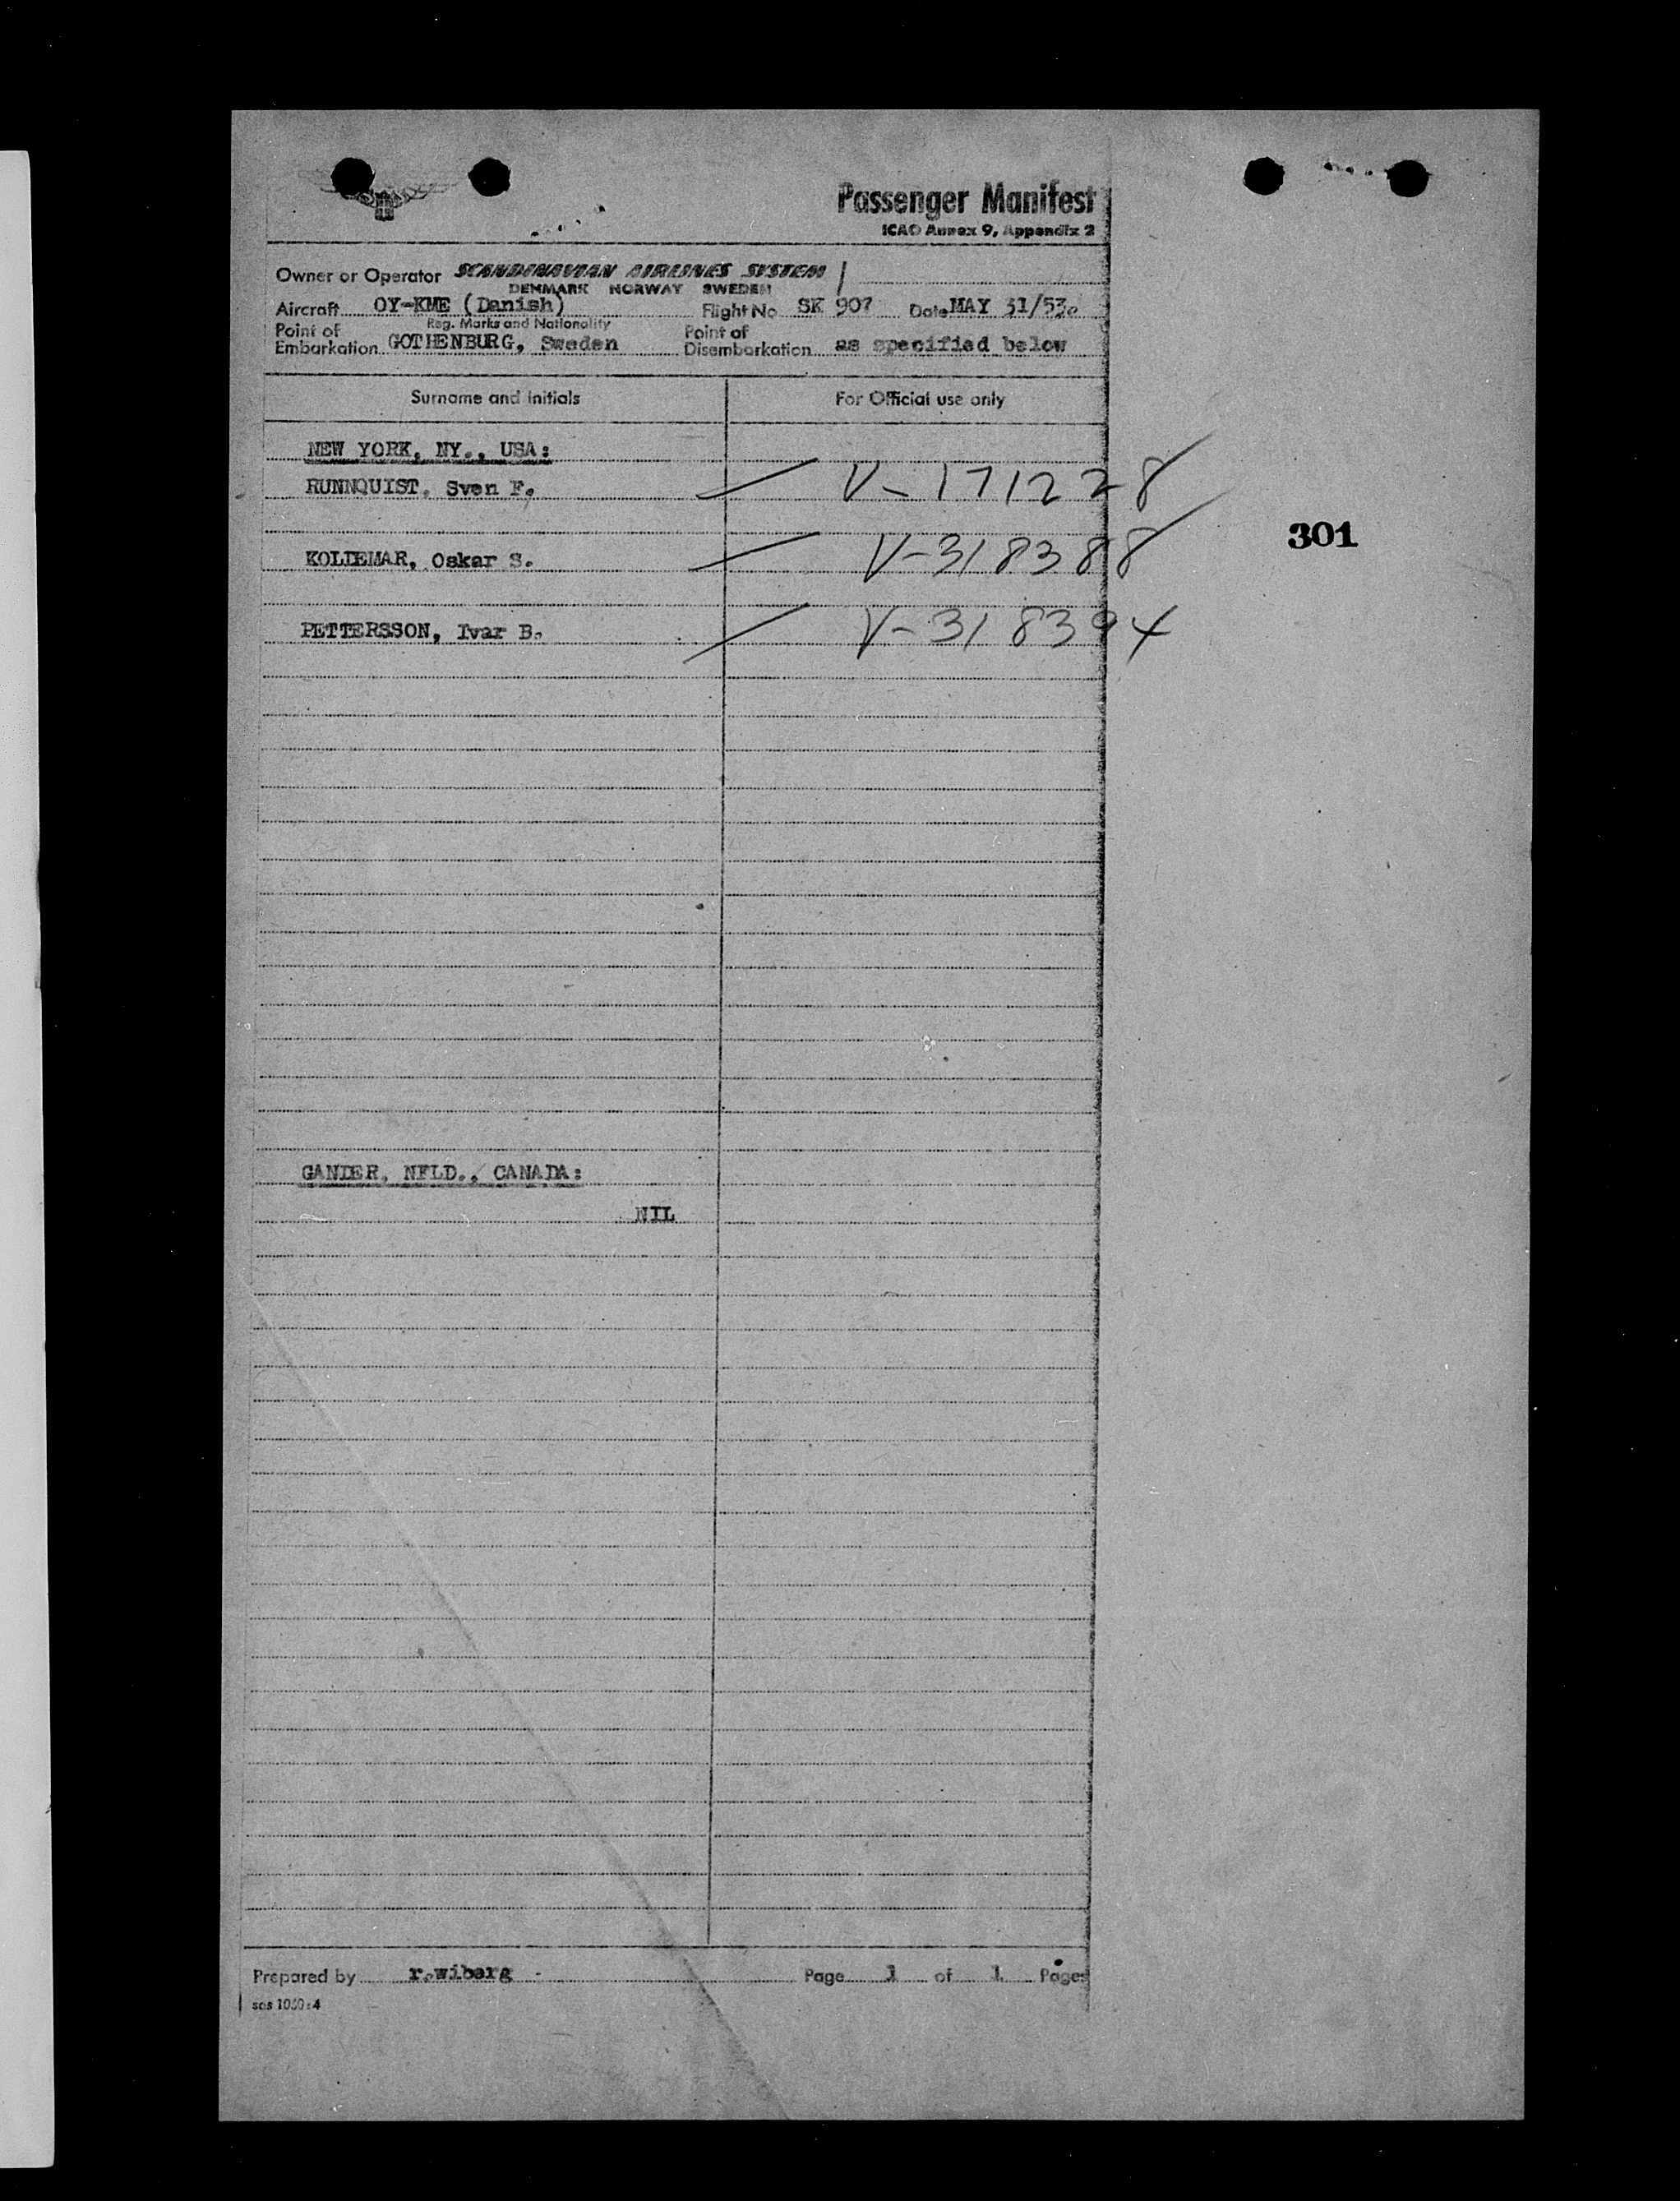 Passenger Manifest
ICAO Annex 9, Appendix 2
Owner or Operator SCANDINAVIAN AIRLINES SYSTEM
DENMARK NORWAY SWEDEN
Aircraft OY-KME (Danish) Flight No SK 907 Date MAY 31/53.
Reg. Marks and Nationality
Point of Embarkation GOTHENBURG, Sweden Point of Disembarkation as specified below
Surname and Initials For Official use only
NEW YORK, NY., USA:
RUNNQUIST, Sven F. V-171228
301
KOLDEMAR, Oskar S. V-318388
PETTERSSON, Ivar B. V-318394
GANDER, NFLD., CANADA:
NIL
Prepared by r.wiberg - Page 1 of 1 Pages